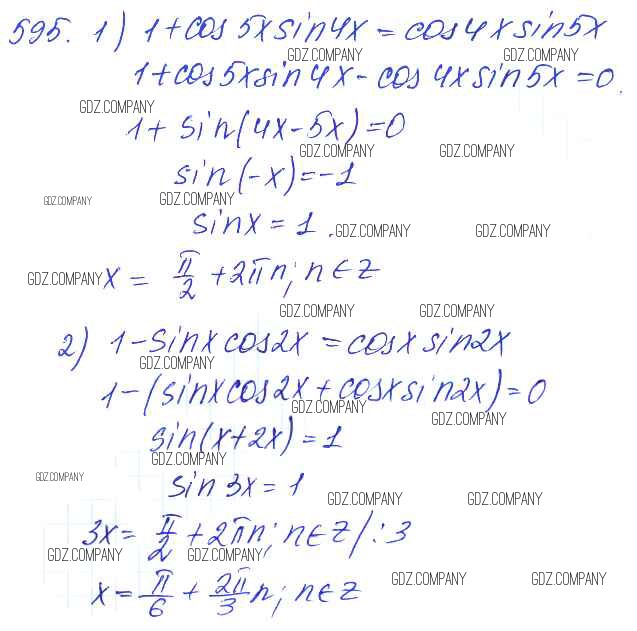 595. 1) 1+cos 5x sin 4x = cos 4x sin 5x
GDZ.COMPANY GDZ.COMPANY
1+cos 5x sin 4x - cos 4x sin 5x = 0.
GDZ.COMPANY
1 + sin(4x-5x)=0
GDZ.COMPANY GDZ.COMPANY
sin(-x)=-1
GDZ.COMPANY GDZ.COMPANY
sin x = 1. GDZ.COMPANY GDZ.COMPANY
GDZ.COMPANY x = π/2 + 2πn; n∈Z
GDZ.COMPANY GDZ.COMPANY
2) 1-sin x cos 2x = cos x sin 2x
GDZ.COMPANY
1-(sin x cos 2x + cos x sin 2x)=0
GDZ.COMPANY GDZ.COMPANY
sin(x+2x)=1
GDZ.COMPANY
GDZ.COMPANY sin 3x = 1
GDZ.COMPANY GDZ.COMPANY
3x = π/2 + 2πn; n∈Z /:3
GDZ.COMPANY GDZ.COMPANY
x = π/6 + 2π/3 n; n∈Z
GDZ.COMPANY GDZ.COMPANY